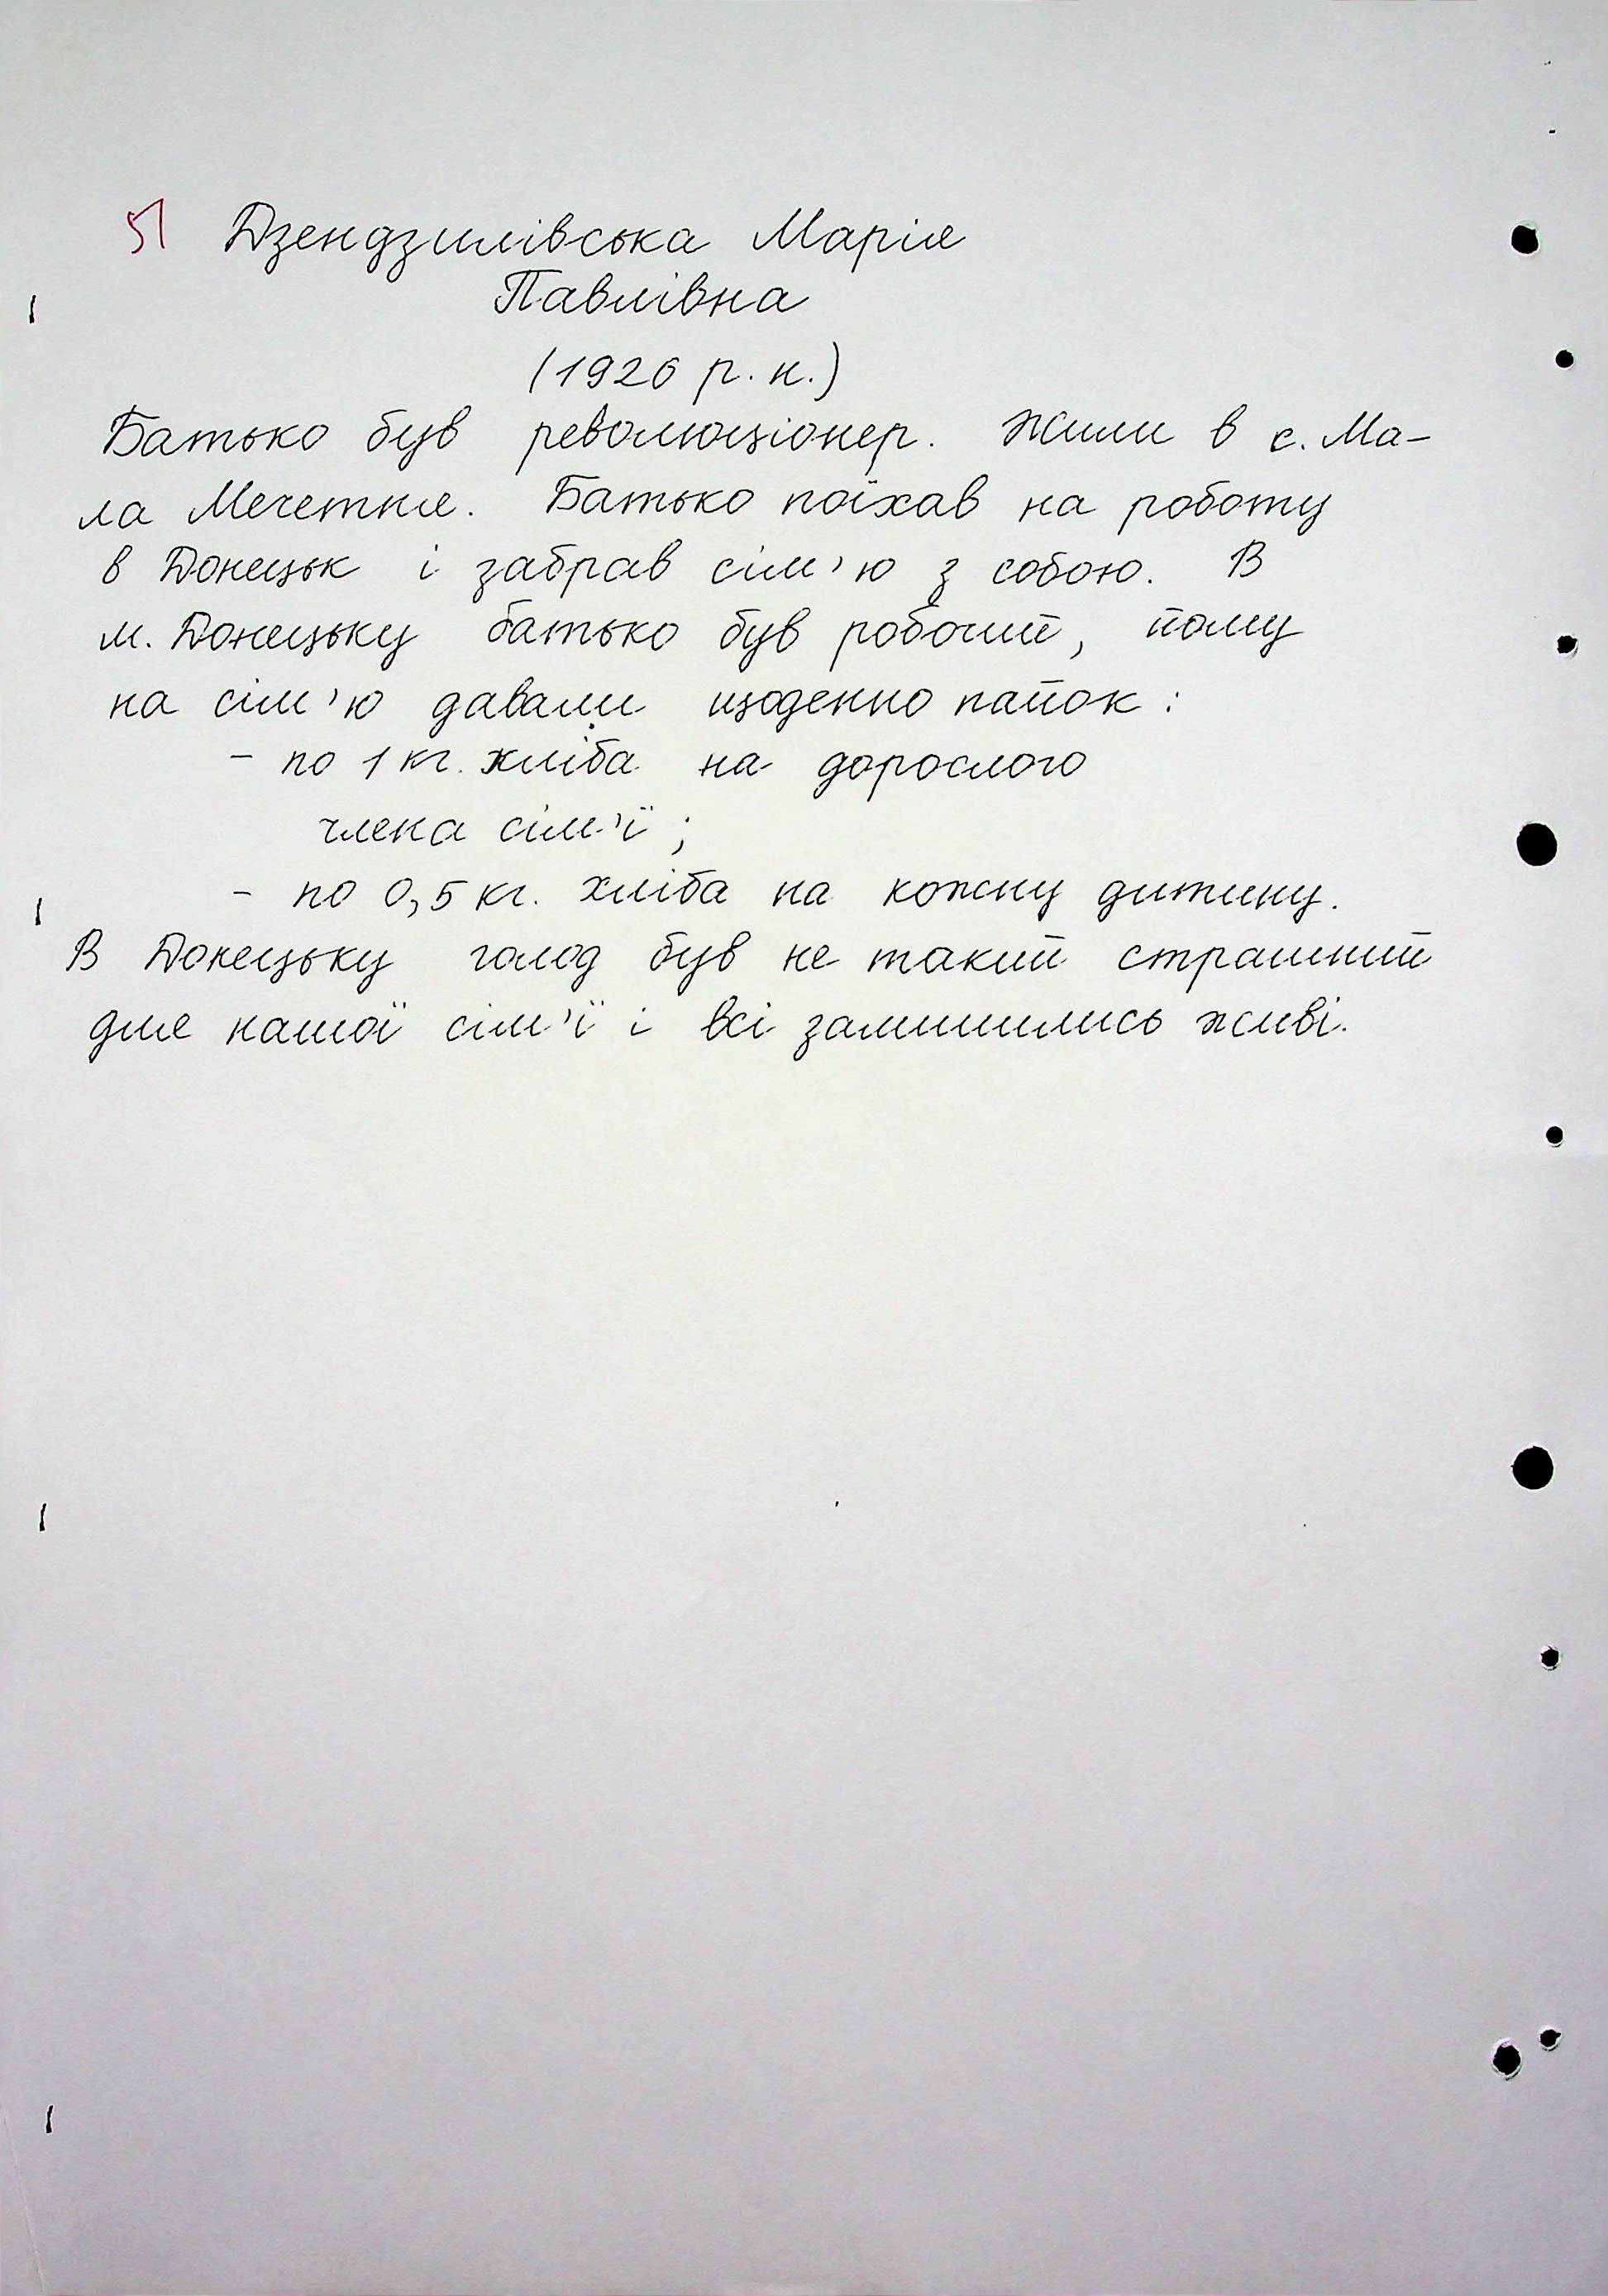 51 Дзендзилівська Марія
Павлівна
(1926 р. н.)
Батько був революціонер. Жили в с. Ма-
ла Мечетня. Батько поїхав на роботу
в Донецьк і забрав сім'ю з собою. В
м. Донецьку батько був робочий, йому
на сім'ю давали щоденно пайок:
- по 1 кг. хліба на дорослого
члена сім'ї;
- по 0,5 кг. хліба на кожну дитину.
В Донецьку голод був не такий страшний
для нашої сім'ї і всі залишились живі.